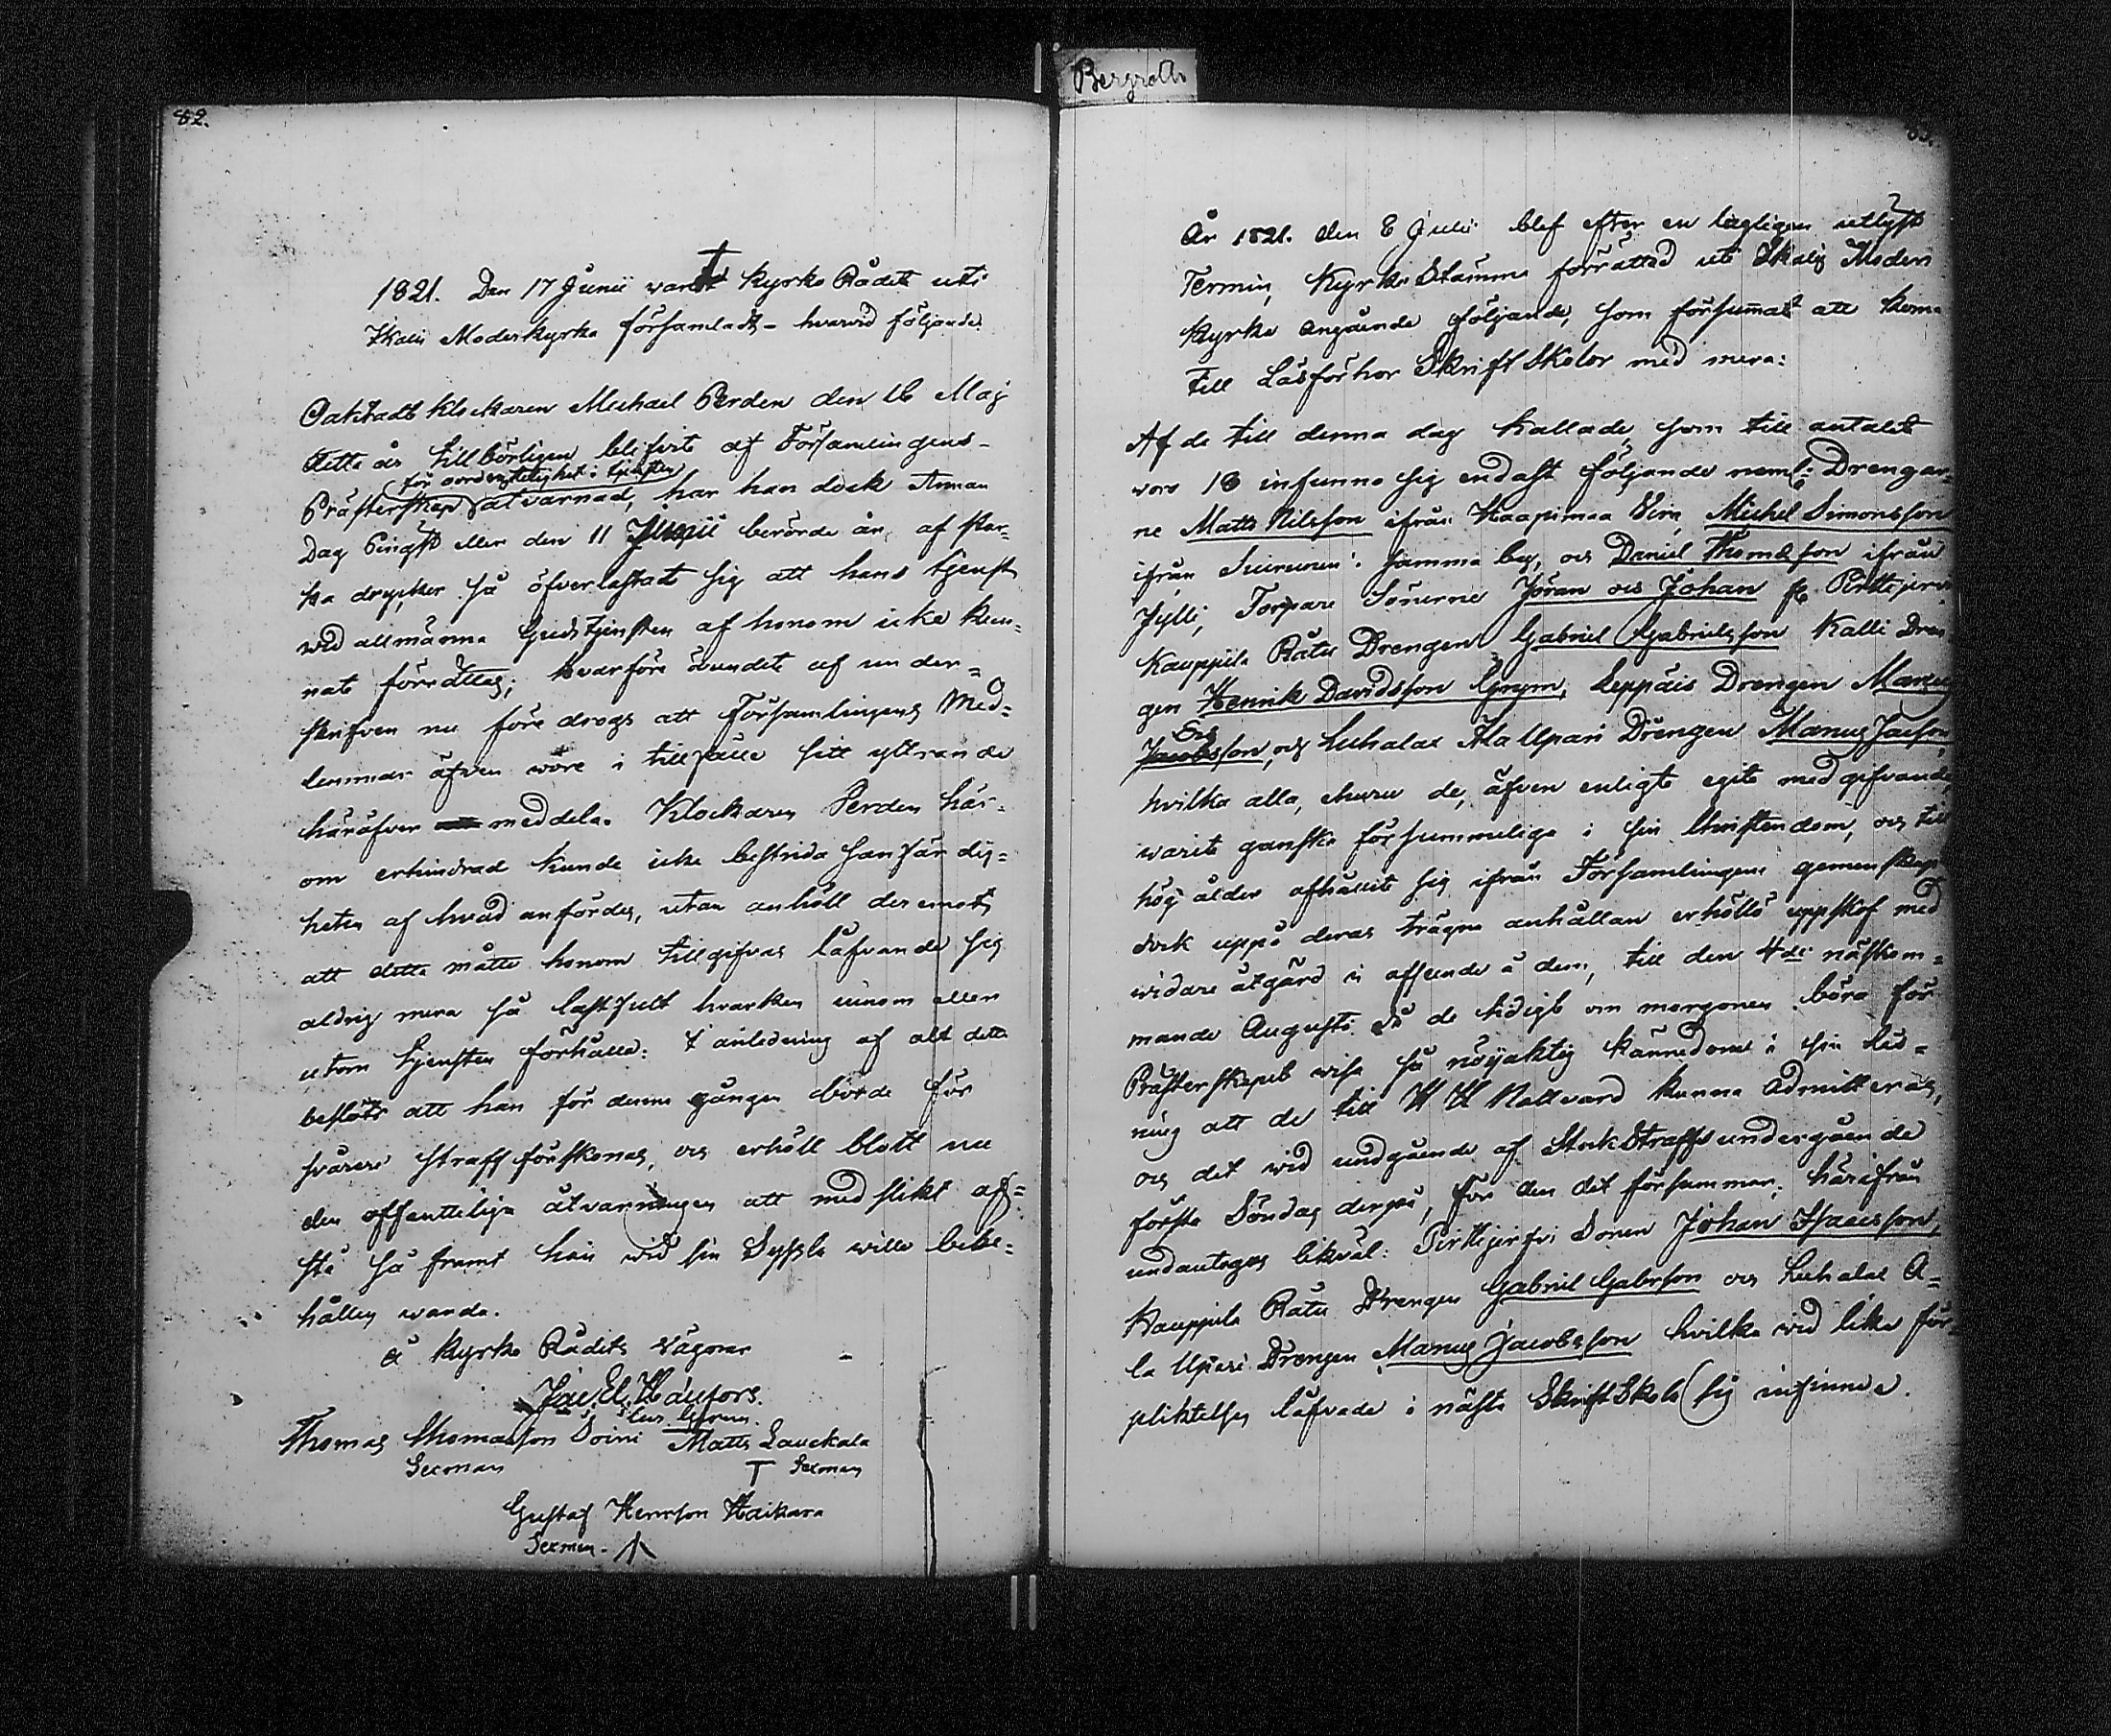 Bergroth
82.
1821. Den 17 Junii vardt Kyrko Rådet uti
Ikalis Moderkyrka församladt – hvarvid följande
Oaktadt Klockaren Michael Perden den 16 Maj
detta år tillbörligen blifvit af Församlingens
för oordentelighet i tjensten
Prästerskap atvarnad, har han dock Annan
Dag Pingst eller den 11 Junii berörde år, af star-
ka drycker så öfverlastat sig att hans tjenst
wid allmänna Gudstjensten af honom icke kun-
nat förrättas; hvarföre ärendet af under-
skrifven nu före drogs att Församlingens Med-
lemmar äfven wore i tillfälle sitt yttrande
häröfver meddela. Klockaren Perden här-
om erhindrad kunde icke bestrida sanfärdig-
heten af hvad anfördes, utan anhöll deremot,
att detta måtte honom tillgifvas låfvande sig
aldrig mera så lastfult hvarken innom eller
utom tjensten förhålla: I anledning af alt detta
beslöts att han för denna gången borde för
svårare straff förskonas, och erhöll blott nu
den offentteliga åtvarningen att med slikt af-
stå så framt han wid sin Syssla wille bibe-
hållen warda.
å Kyrko Rådets vägnar
Thomas Thomasson Soini Matts Lauckala
Sexman T Sexman
Gustaf Henrson Haikara
Sexman
83.
År 1821. den 8 Julii blef efter en lagligen utlyst
Termin, Kyrko Stämma förrättad uti Ikalis Moder
Kyrka angående följande, som försummat att komma
till Läsförhör Skrift Skolor med mera:
Af de till denna dag kallade, som till antalet
voro 18 infunno sig endast följande neml: Drengar-
ne Matts Nilsson ifrån Haapimaa Eira, Michel Simonsson
ifrån samma by, och Daniel Thomasson ifrån
Jylli, Torpare Sönerne Jöran och Johan fr.
Kauppila Rätu Drengen Gabriel Gabrielsson Kalli Dren
gen Henrik Davidsson Grym, Leppäis Drengen Manus
Jacobsson, och Luhalax Ala Upari Drengen Manus Jacsson,
hvilka alla, ehuru de, äfven enligt egit medgifvande,
warit ganska försummelige i sin Christendom, och till
hög ålder afhållit sig ifrån Församlingens gemenskap
dock uppå deras trägna anhållan erhöllo uppskof med
widare åtgärd i afseende å dem, till den 4de nästkom-
mande Augusti då de tidigt om morgonen böra för
Prästerskapet wisa så nöyaktig kännedom i sin läs-
ning att de till H H Nattvard kunna Admitteras,
och det wid undgående af StockStraffs undergående
första Söndag derpå, för den det försummar; härifrån
undantages likväl: Sonen Johan Isacsson,
Kauppila Rätu Drengen Gabriel Gabrsson och Luhalax A-
la Upari Drengen Manus Jacobsson hvilka wid lika för-
pliktelser låfvade i nästa Skrift Skola sig infinna.